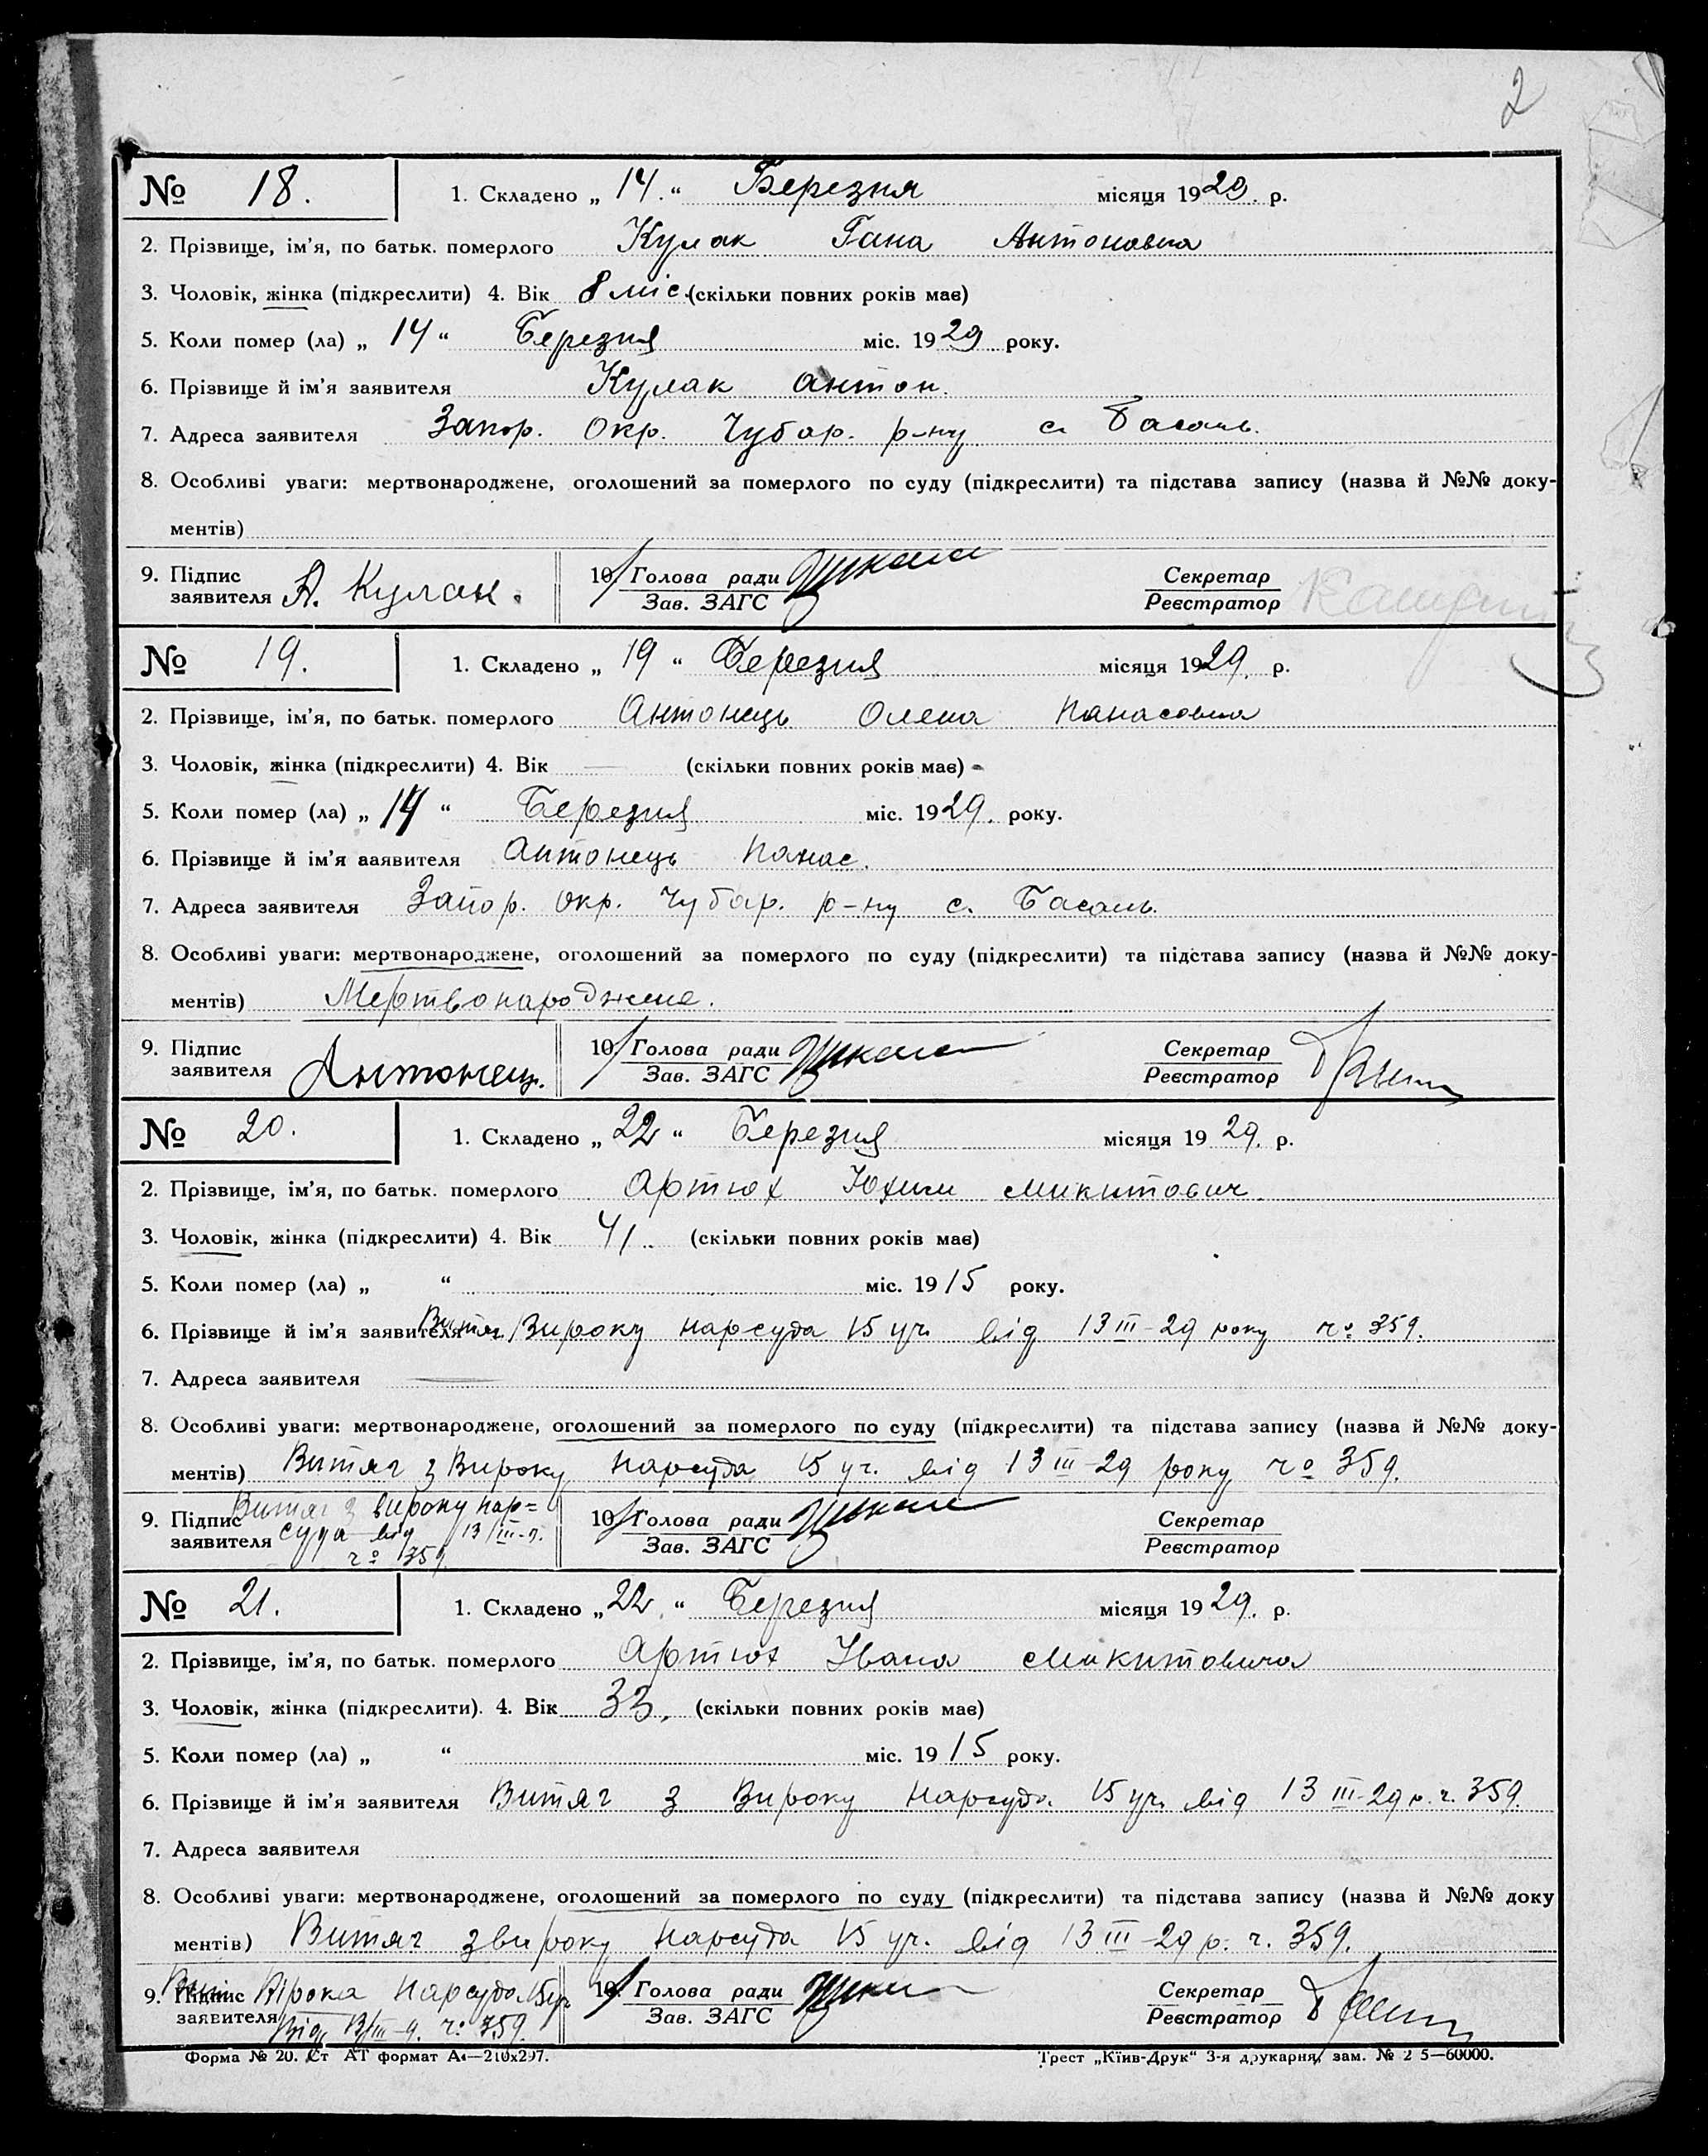 2
№ 18. 1. Складено „ 14. “ Березня місяця 1929. р.
2. Прізвище, ім'я, по батьк. померлого Кулак Гана Антоновна
3. Чоловік, жінка (підкреслити) 4. Вік 8 міс. (скільки повних років має)
5. Коли помер (ла) „ 14 “ Березня міс. 1929 року.
6. Прізвище й ім'я заявителя Кулак Антон.
7. Адреса заявителя Запор. Окр. Чубар. р-ну с. Басань.
8. Особливі уваги: мертвонароджене, оголошений за померлого по суду (підкреслити) та підстава запису (назва й №№ доку-
ментів)
9. Підпис заявителя А. Кулак. 10. Голова ради Зав. ЗАГС Секретар Реєстратор
№ 19. 1. Складено „ 19 “ Березня місяця 1929. р.
2. Прізвище, ім'я, по батьк. померлого Антонець Олена Панасовна
3. Чоловік, жінка (підкреслити) 4. Вік — (скільки повних років має) -
5. Коли помер (ла) „ 14 “ Березня міс. 1929. року.
6. Прізвище й ім'я ааявителя Антонець Панас.
7. Адреса заявителя Запор. окр. Чубар. р-ну с. Басань.
8. Особливі уваги: мертвонароджене, оголошений за померлого по суду (підкреслити) та підстава запису (назва й №№ доку-
ментів) Мертвонароджене.
9. Підпис заявителя Антонець. 10. Голова ради Зав. ЗАГС Секретар Реєстратор
№ 20. 1. Складено „ 22 “ Березня місяця 1929. р.
2. Прізвище, ім'я, по батьк. померлого Артюх Юхим Микитович
3. Чоловік, жінка (підкреслити) 4. Вік 41. (скільки повних років має)
5. Коли помер (ла) „ “ міс. 1915 року.
6. Прізвище й ім'я заявителя Витяг Звироку нарсуда 15 уч. від 13 III-29 року ч. 359.
7. Адреса заявителя —
8. Особливі уваги: мертвонароджене, оголошений за померлого по суду (підкреслити) та підстава запису (назва й №№ доку-
ментів) Витяг з Вироку Нарсуда 15 уч. від 13 III-29 року чо 359.
9. Підпис заявителя Витяг з вироку нар=
суда від 13/III-9.
чо 359.
10. Голова ради Зав. ЗАГС Секретар Реєстратор
№ 21. 1. Складено „ 22. “ Березня місяця 1929. р.
2. Прізвище, ім'я, по батьк. померлого Артюх Івана Микитовича
3. Чоловік, жінка (підкреслити). 4. Вік 33. (скільки повних років має)
5. Коли помер (ла) „ “ міс. 1915 року.
6. Прізвище й ім'я заявителя Витяг з Вироку Нарсуда 15 уч. від 13 III-29 р. ч. 359.
7. Адреса заявителя
8. Особливі уваги: мертвонароджене, оголошений за померлого по суду (підкреслити) та підстава запису (назва й №№ доку
ментів) Витяг звироку Нарсуда 15 уч. від 13 III-29 р. ч. 359.
9. Підпис заявителя Вірока Нарсуда 15 уч
Від 13/III-9. ч. 359.
10. Голова ради Зав. ЗАГС Секретар Реєстратор
Форма № 20. Ст АТ формат А4—210х297. Трест „Київ-Друк“ 3-я друкарня, зам. № 2 5—60000.